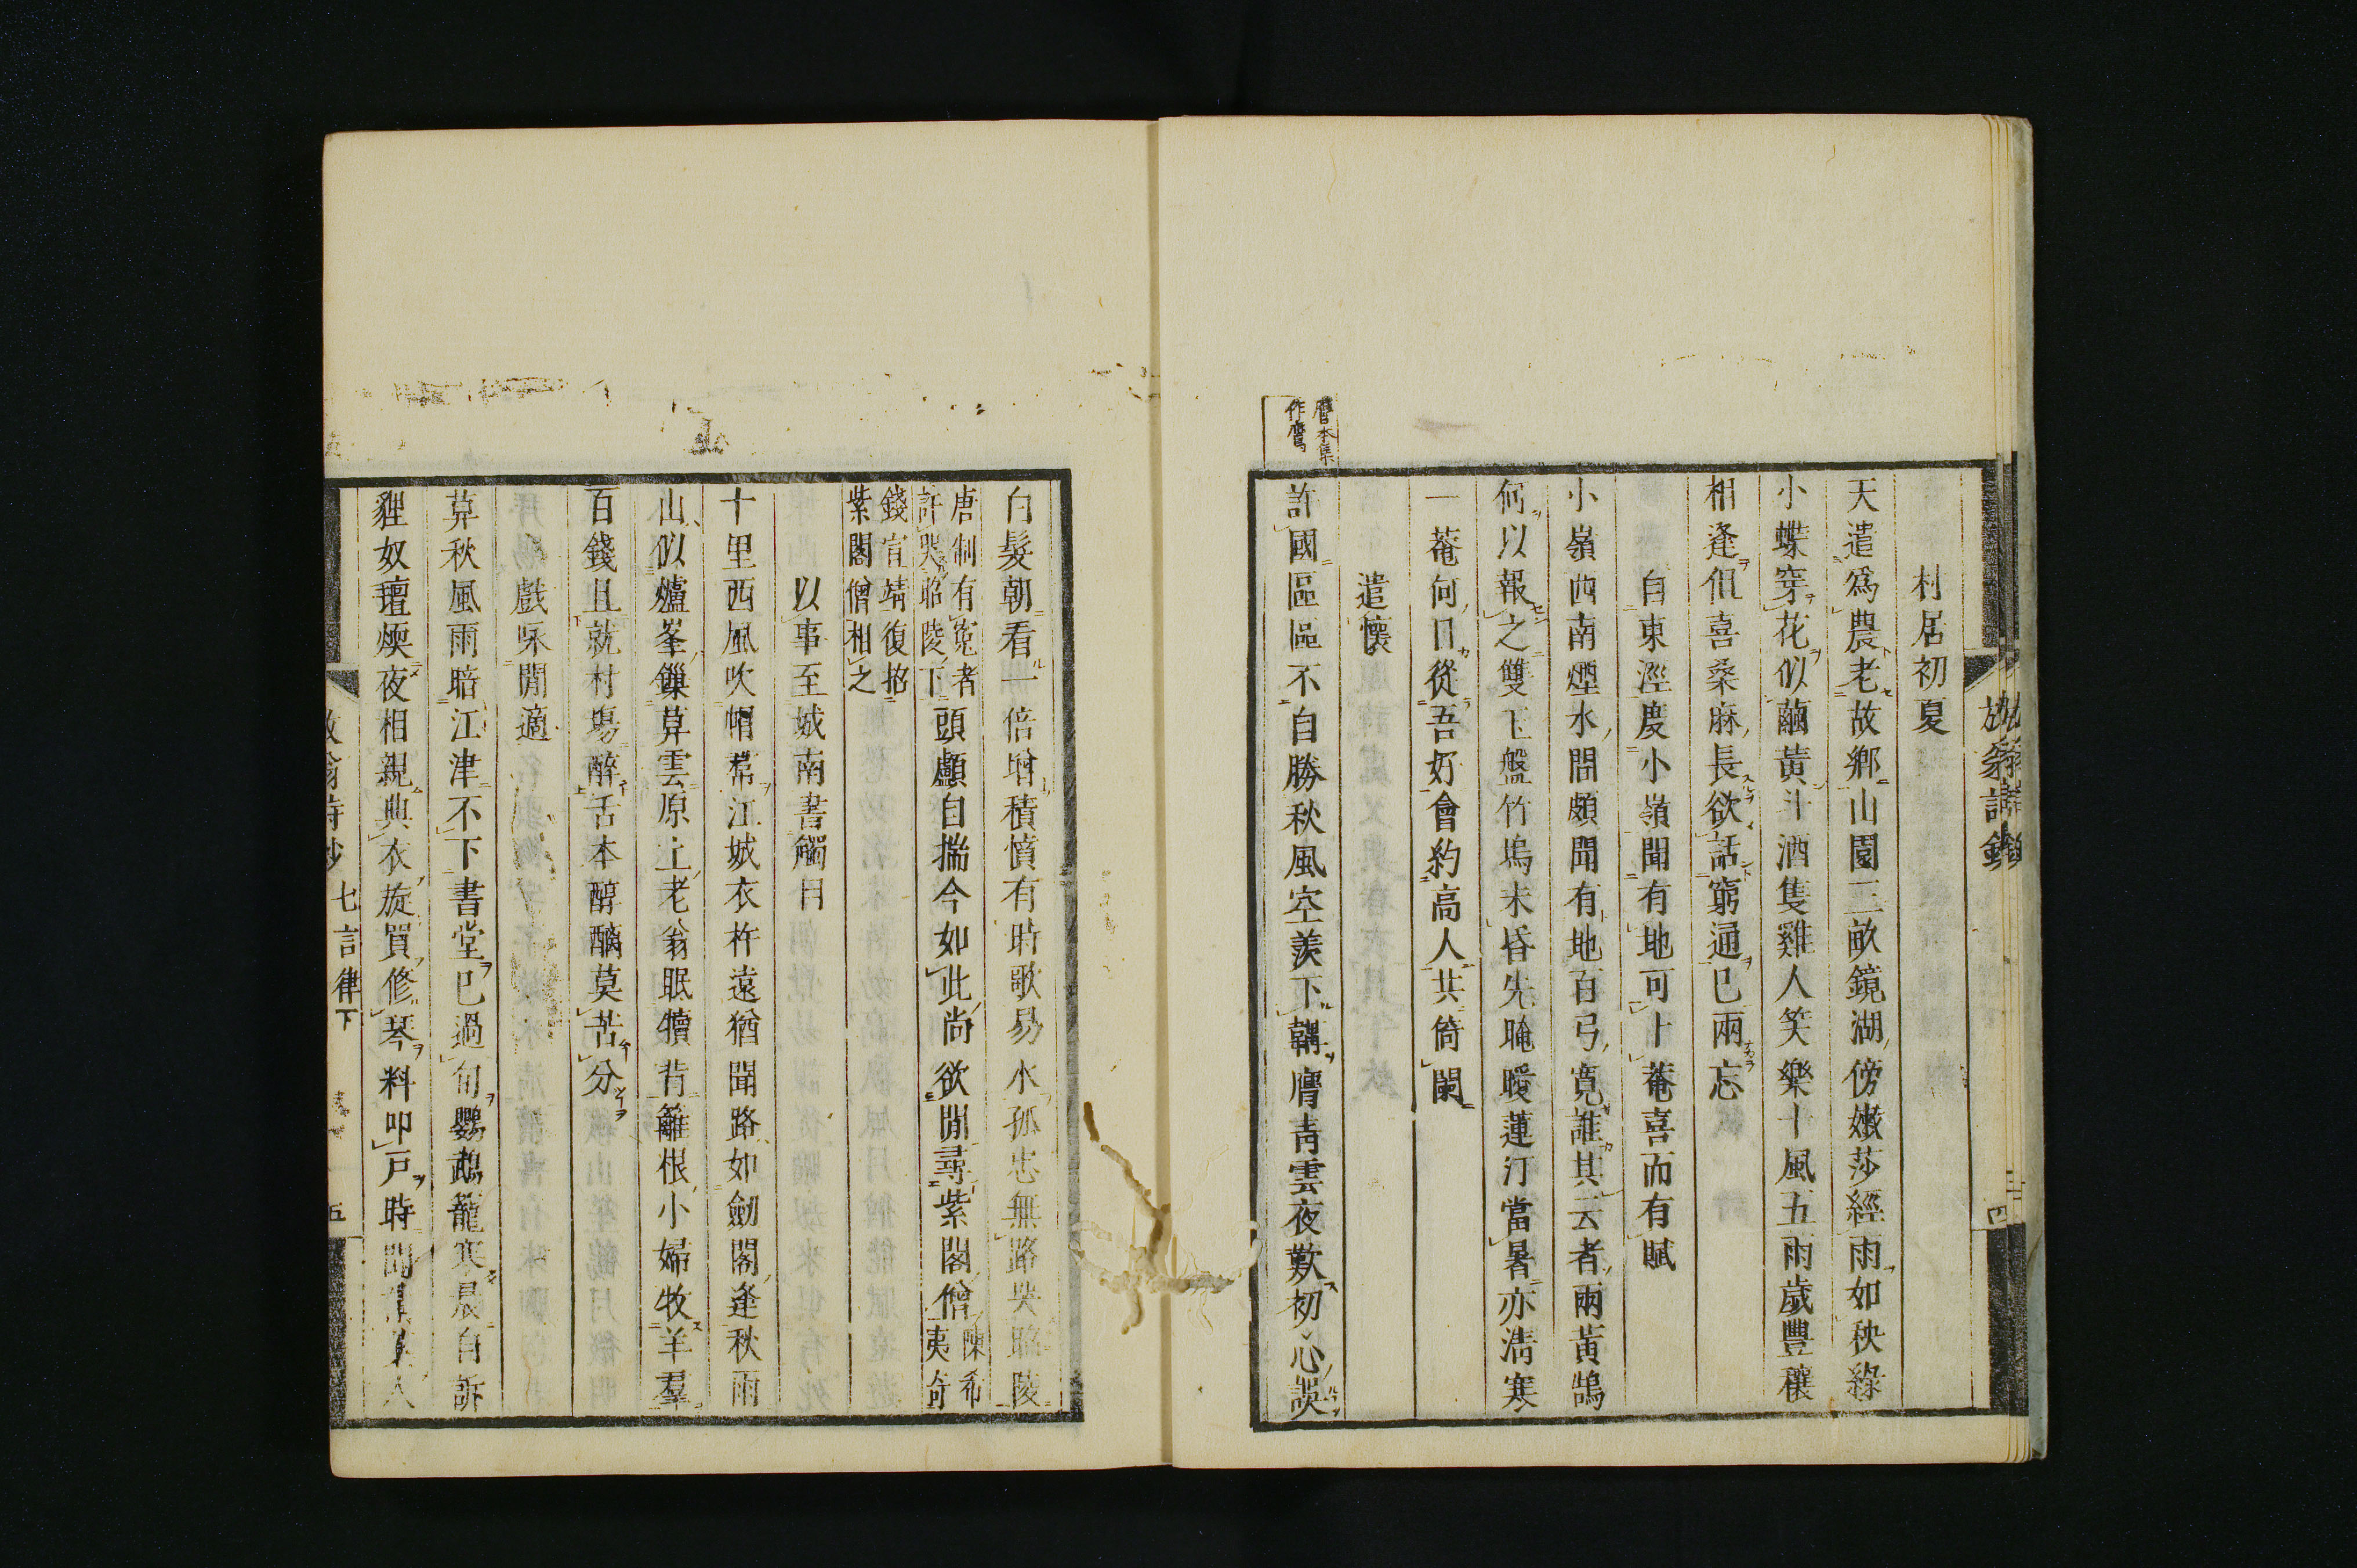 村居初夏
天遣爲農老故鄉山園三畝鏡湖傍嫩莎經雨如秧綠
小蝶穿花似繭黃斗酒隻雞人笑樂十風五雨歲豐穰
相逢但喜桑麻長欲話窮通已兩忘
自東涇度小嶺聞有地可卜菴喜而有賦
小嶺西南煙水間頗聞有地百弓寬誰其云者兩黃鵠
何以報之雙玉盤竹塢未昏先晻曖蓮汀當暑亦淸寒
一菴何日從吾好會約高人共倚闌
遣懷
膺本集
作鷹
許國區區不自勝秋風空羨下韝膺靑雲夜歎初心誤
白髮朝看一倍增積憤有時歌易水孤忠無路哭昭陵
唐制有冤者
許哭昭陵下
頭顱自揣今如此尚欲閒尋紫閣僧
陳希
夷奇
錢宣靖復招
紫閣僧相之
以事至城南書觸目
十里西風吹帽裙江城衣杵遠猶聞路如劒閣逢秋雨
山似爐峯鏁莫雲原上老翁眠犢背籬根小婦牧羊羣
百錢且就村場醉舌本醇醨莫苦分
戲咏閒適
莫秋風雨暗江津不下書堂已過旬鸚鵡籠寒晨自訴
貍奴氊煗夜相親典衣旋買修琴料叩戶時聞
人
七言律下
五